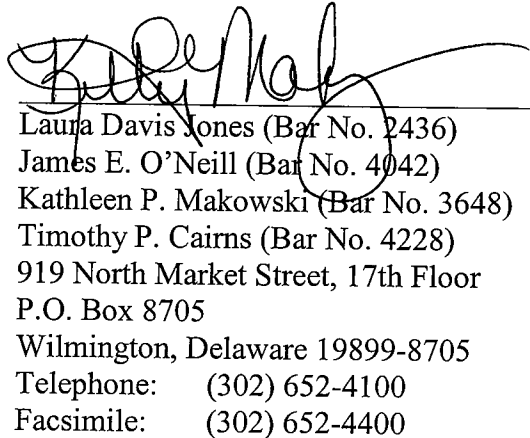 Laura Davis Jones (Bar No. 2436)
James E. O'Neill (Bar No. 4042)
Kathleen P. Makowski (Bar No. 3648)
Timothy P. Cairns (Bar No. 4228)
919 North Market Street, 17th Floor
P.O. Box 8705
Wilmington, Delaware 19899-8705
Telephone: (302) 652-4100
Facsimile: (302) 652-4400